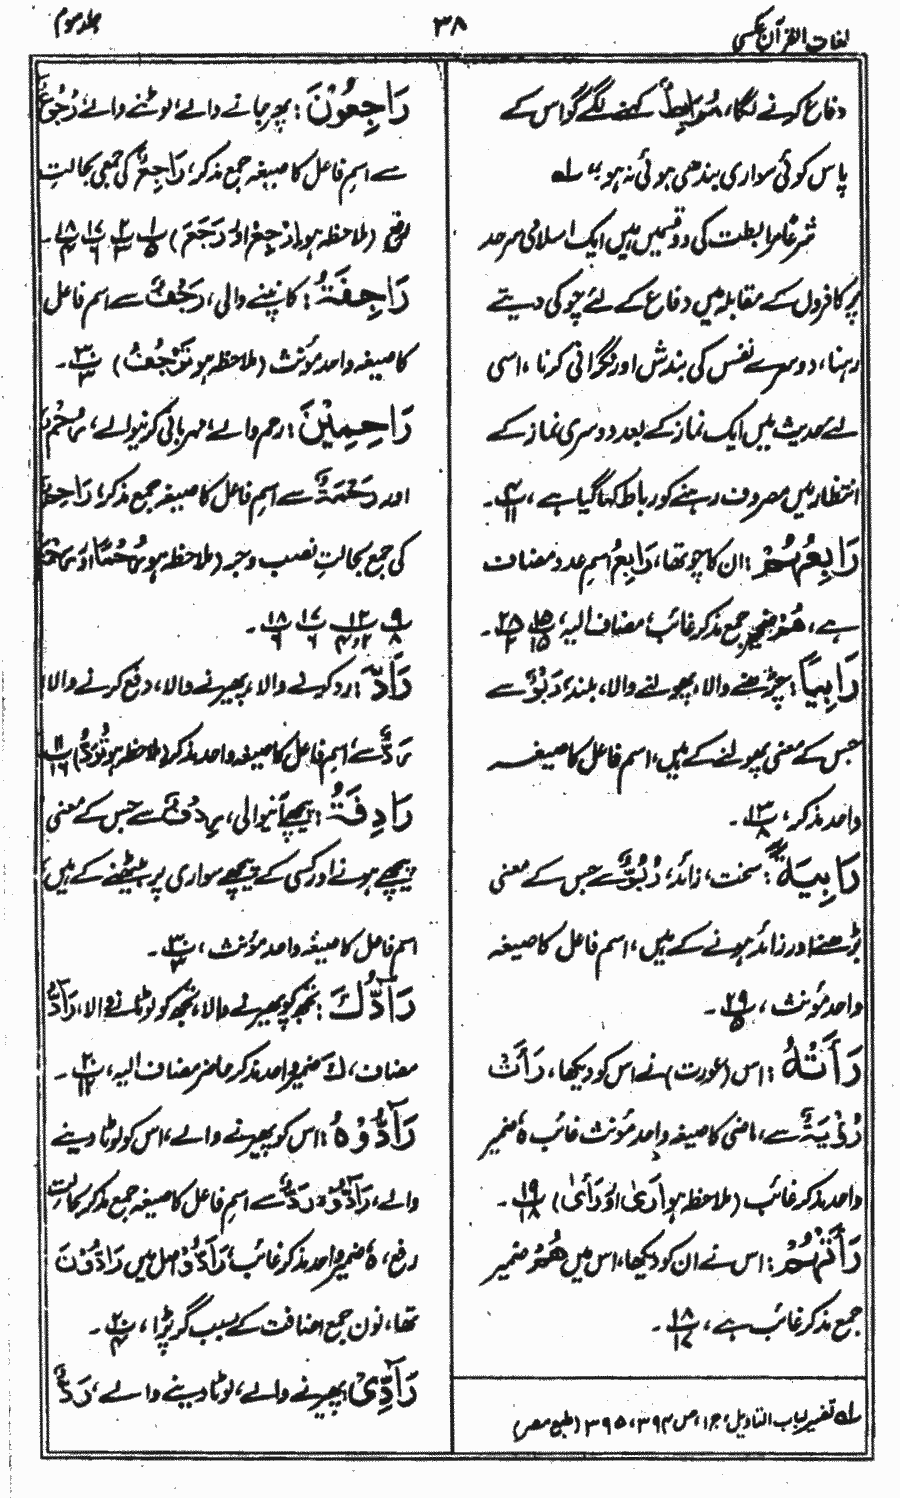 لغات القرآن عکسی
۳۸
جلد سوم
دفاع کرنے لگا، مُرَابِطٌ کہنے لگے گو اس کے
پاس کوئی سواری بندھی ہوئی نہ ہو۔ ؎۱
شرعًا مرابطت کی دو قسمیں ہیں ایک اسلامی سرحد
پر کافروں کے مقابلہ میں دفاع کے لئے چوکی دیتے
رہنا، دوسرے نفس کی بندش اور نگرانی کرنا، اسی
لئے حدیث میں ایک نماز کے بعد دوسری نماز کے
انتظار میں مصروف رہنے کو رباط کہا گیا ہے، ۴/۱۱۔
رَابِعُهُمْ: ان کا چوتھا، رَابِعُ اسمِ عدد مضاف
ہے، هُمْ ضمیر جمع مذکر غائب، مضاف الیہ، ۱۵/۱۵ ۲۸/۲۔
رَابِيًا: چڑھنے والا، پھولنے والا، بلند، رَبْوٌ سے
جس کے معنی پھولنے کے ہیں، اسم فاعل کا صیغہ
واحد مذکر، ۱۳/۸۔
رَابِيَةً: سخت، زائد، رُبُوٌّ سے جس کے معنی
بڑھنے اور زائد ہونے کے ہیں، اسم فاعل کا صیغہ
واحد مؤنث، ۲۹/۵۔
رَأَتْهُ: اس (عورت) نے اس کو دیکھا، رَأَتْ
رُؤْيَةٌ سے، ماضی کا صیغہ واحد مؤنث غائب ہٗ ضمیر
واحد مذکر غائب (ملاحظہ ہو اَرَیٰ اور رَأَیٰ) ۱۹/۱۸۔
رَأَتْهُمْ: اس نے ان کو دیکھا، اس میں هُمْ ضمیر
جمع مذکر غائب ہے، ۱۸/۱۷۔
؎۱ تفسیر لباب التاویل، جزا، ص ۳۹۴، ۳۹۵ (طبع مصر)
رَاجِعُوْنَ: پھر جانے والے، لوٹنے والے، رُجُوْعٌ
سے اسمِ فاعل کا صیغہ جمع مذکر، رَاجِعٌ کی جمع بحالتِ
رفع (ملاحظہ ہو اِرْجِعْ اور رَجَعَ) ۱/۵ ۲/۳ ۱۷/۶ ۱۸/۴۔
رَاجِفَةُ: کانپنے والی، رَجْفٌ سے اسم فاعل
کا صیغہ واحد مؤنث (ملاحظہ ہو تَرْجُفُ) ۳۰/۳۔
رَاحِمِيْنَ: رحم والے، مہربانی کرنیوالے، رُحْمٌ
اور رَحْمَةٌ سے اسم فاعل کا صیغہ جمع مذکر، رَاحِمٌ
کی جمع بحالتِ نصب و جر (ملاحظہ ہو
۹/۸ ۱۳/۲،۴ ۱۷/۶ ۱۸/۶۔
رَآدَّ: رد کرنے والا، پھیرنے والا، دفع کرنے والا
رَدٌّ سے، اسمِ فاعل کا صیغہ واحد مذکر (ملاحظہ ہو تُرَدُّ) ۱۱/۱۶
رَادِفَةُ: پیچھے آنیوالی، رِدْفٌ سے جس کے معنی
پیچھے ہونے اور کسی کے پیچھے سواری پر بیٹھنے کے ہیں،
اسم فاعل کا صیغہ واحد مؤنث، ۳۰/۳۔
رَآدُّكَ: تجھ کو پھیرنے والا، تجھ کو لوٹانے والا، رَآدُّ
مضاف، كَ ضمیر واحد مذکر حاضر مضاف الیہ، ۲۰/۱۲۔
رَآدُّوْهُ: اس کو پھیرنے والے، اس کو لوٹا دینے
والے، رَآدُّوْ، رَدٌّ سے اسمِ فاعل کا صیغہ جمع مذکر بحالت
رفع، ہٗ ضمیر واحد مذکر غائب، رَآدُّوْ اصل میں رَآدُّوْنَ
تھا، نون جمع اضافت کے سبب گر پڑا، ۲۰/۴۔
رَآدِّيْ: پھیرنے والے، لوٹا دینے والے، رَدٌّ